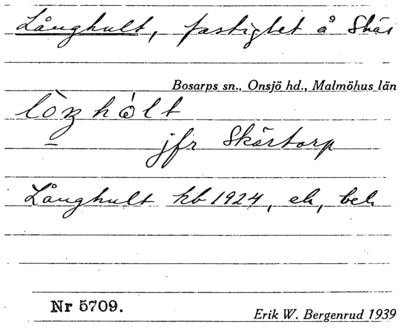 Långhult, fastighet å Skär
Bosarps sn., Onsjö hd., Malmöhus län
lòŋhòlt
jfr Skärtorp
Långhult kb 1924, ek, beb.
Nr 5709.
Erik W. Bergenrud 1939